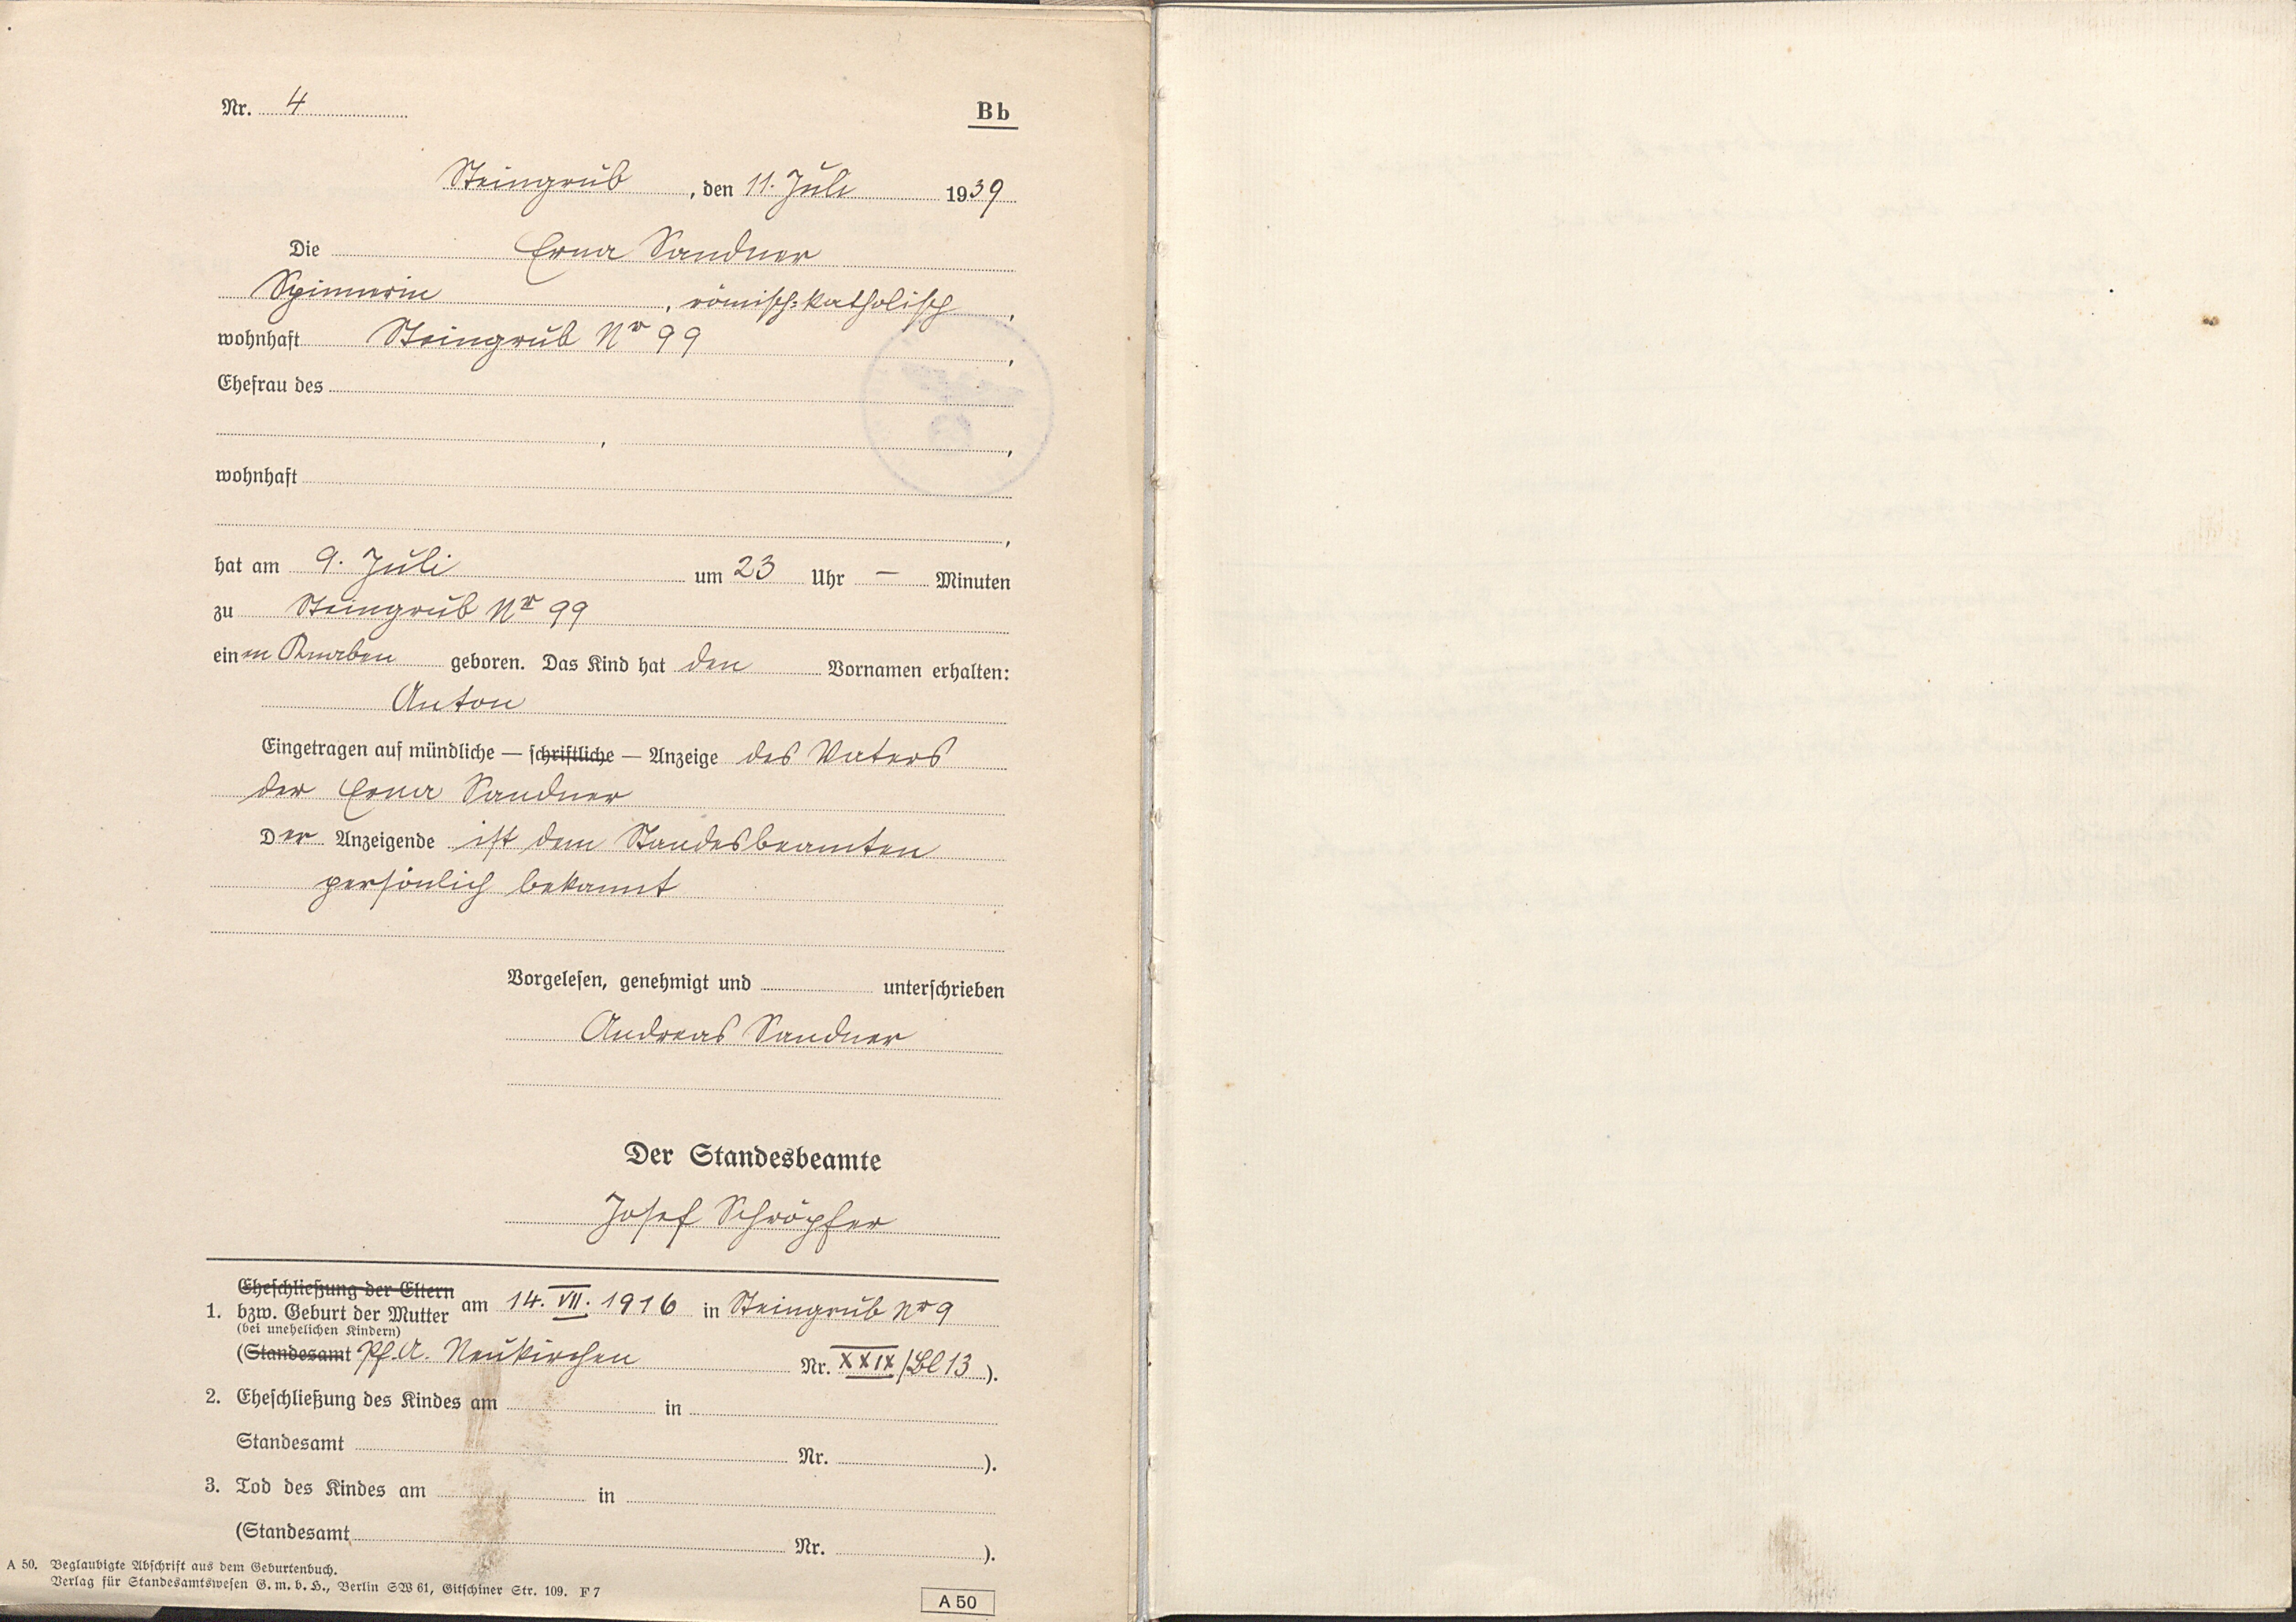 Nr. 4
Bb
Steingrub, den 11. Juli 1939
Die Erna Sandner
Spinnerin, römisch-katholisch,
wohnhaft Steingrub Nr 99,
Ehefrau des
wohnhaft
hat am 9. Juli um 23 Uhr — Minuten
zu Steingrub Nr 99
einen Knaben geboren. Das Kind hat den Vornamen erhalten:
Anton
Eingetragen auf mündliche — schriftliche — Anzeige des Vaters
der Erna Sandner
Der Anzeigende ist dem Standesbeamten
persönlich bekannt
Vorgelesen, genehmigt und unterschrieben
Andreas Sandner
Der Standesbeamte
Josef Schröpfer
Eheschließung der Eltern
1. bzw. Geburt der Mutter am 14. VII. 1916 in Steingrub Nr 9
(bei unehelichen Kindern)
(Standesamt Pf. A. Neukirchen Nr. XXIX/Bl 13).
2. Eheschließung des Kindes am in
Standesamt Nr. ).
3. Tod des Kindes am in
(Standesamt Nr. ).
A 50. Beglaubigte Abschrift aus dem Geburtenbuch.
Verlag für Standesamtswesen G. m. b. H., Berlin SW 61, Gitschiner Str. 109. F 7
A 50